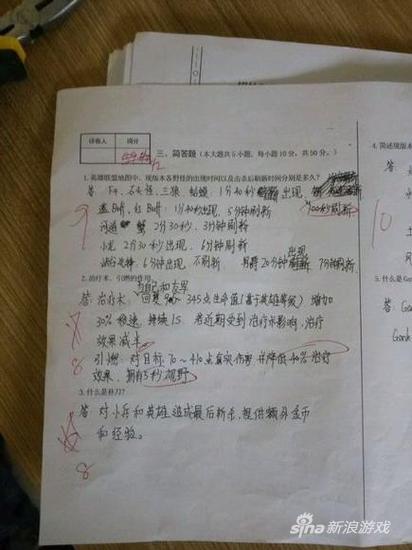 评卷人 得分
三、简答题（本大题共5小题，每小题10分，共50分。）
1. 英雄联盟地图中，现版本各野怪的出现时间以及击杀后刷新时间分别是多久？
答：F4、石头怪、三狼、蛤蟆、1分40秒出现，
蓝Buff、红Buff：1分40秒出现，5分钟刷新
河道蟹 2分30秒、3分钟刷新
小龙 2分30秒出现、6分钟刷新
峡谷先锋，6分钟出现，不刷新 20分钟出现 7分钟刷新
9
2. 治疗术、引燃的作用。
答：治疗术：为自己和友军回复 345点生命值（基于英雄等级）增加
30%移速，持续1s 若近期受到治疗术影响，治疗
效果减半
引燃：对目标70~410点真实伤害 并降低40%治疗
效果、拥有5秒视野
8
3. 什么是补刀？
答 对小兵和英雄造成最后斩杀，提供额外金币
和经验。
8
4. 简述现版本
答：
10
5. 什么是Gank
答：Gank
Gank
sina新浪游戏